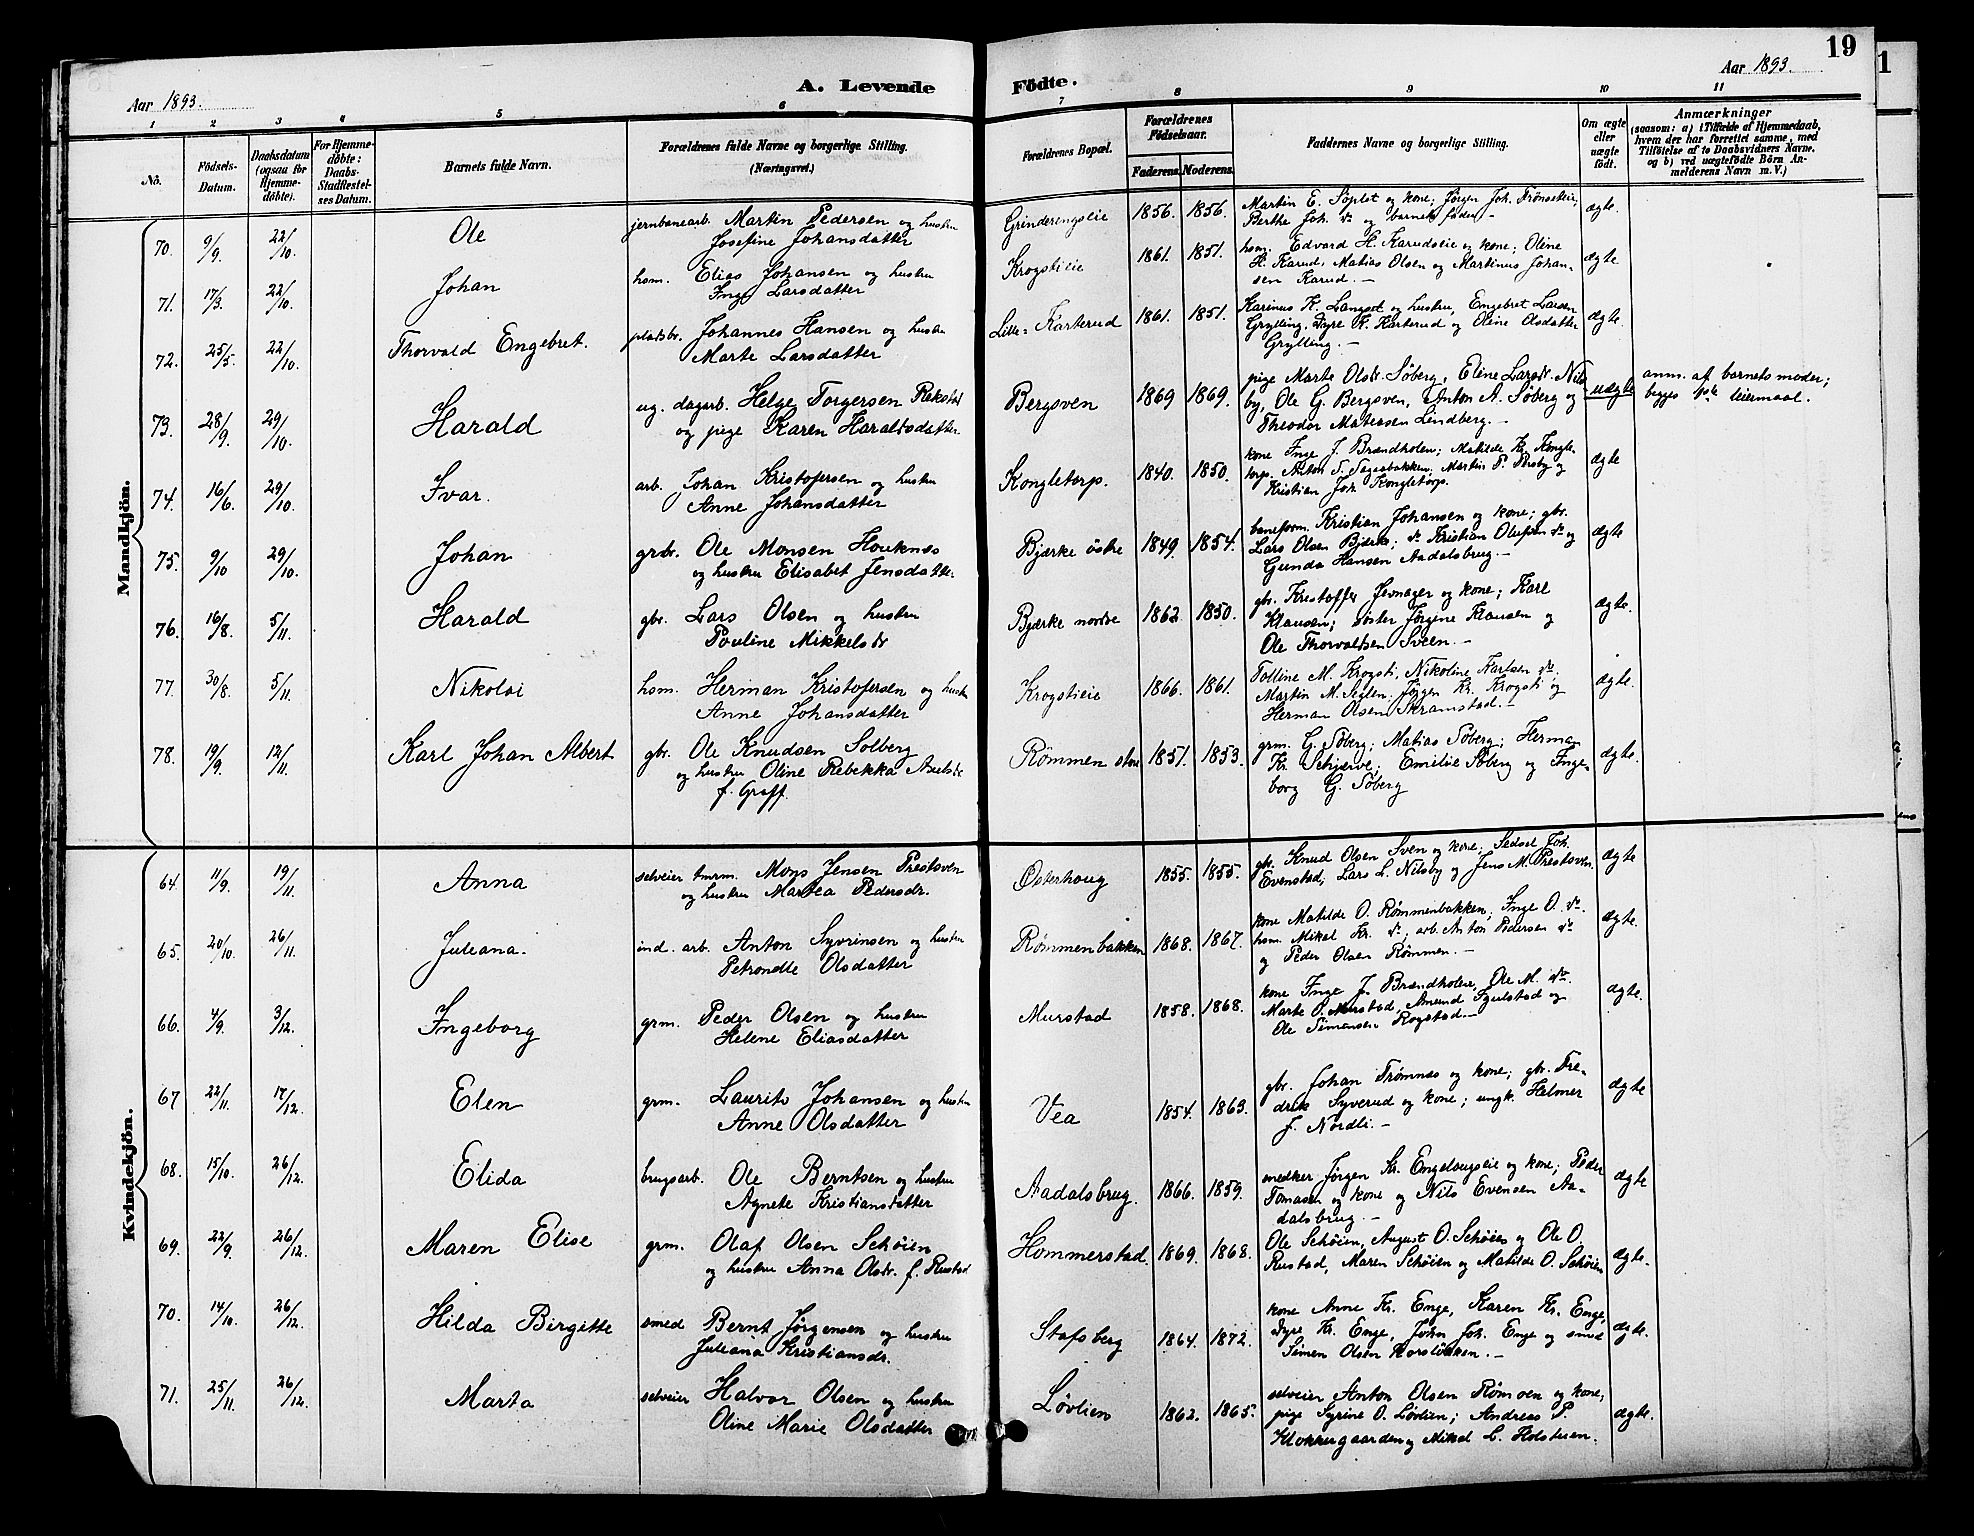 19
1
Aar 1893.
A. Levende
Födte.
Aar 1893.
1 2 3 4 5 6 7 8 9 10 11
No.
Födsels-Datum.
Daabsdatum (ogsaa for Hjemme-döbte).
For Hjemme-döbte: Daabs-Stadfæstel-ses Datum.
Barnets fulde Navn.
Forældrenes fulde Navne og borgerlige Stilling. (Næringsvei.)
Forældrenes Bopæl.
Forældrenes Födselsaar.
Faderens. Moderens.
Faddernes Navne og borgerlige Stilling.
Om ægte eller uægte födt.
Anmærkninger
(saasom: a) i Tilfælde af Hjemmedaab, hvem der har forrettet samme, med Tilföielse af to Daabsvidners Navne, og b) ved uægtefödte Börn An-melderens Navn m.V.)
Mandkjön.
70. 9/9. 22/10. Ole jernbanearb. Martin Pedersen og hustru
Josefine Johansdatter
Grinderengseie 1856. 1856. Martin E. og kone; Jørgen Joh.
Berthe Joh. do og barnets fader. ægte.
71. 17/3. 22/10. Johan hsm. Elias Johansen og hustru
Inge Larsdatter
Krogstieie 1861. 1851. hsm. Edvard H. Karudseie og kone; Oline
H. Karud, Matias Olsen og Martinus Johan-
sen Karud. ægte
72. 25/5. 22/10. Thorvald Engebret. pladsbr. Johannes Hansen og hustru
Marte Larsdatter
Lille-Karterud 1861. 1851. Karinus Kr. Langset og hustru, Engebret Larsen
Grylling, Dyre K. Karterud og Oline Olsdatter
Grylling. ægte.
73. 28/9. 29/10. Harald ug. dagarb. Helge Torgersen Rakstad
og pige Karen Haraldsdatter
Bergsven 1869 1869. pige Marte Olsdr. Søberg, Eline Larsdr. Nils-
by, Ole G. Bergsven, Anton A. Søberg og
Theodor Matessen Lindberg. uægte anm. af barnets moder;
begges 1ste leiermaal.
74. 16/6. 29/10. Ivar. arb. Johan Kristofersen og hustru
Anne Johansdatter
Kongletorp. 1840. 1850. kone Inge J. Brændholen; Matilde Kr. Kongle-
torp, Anton Martin P. og
Kristian Joh. Kongletorp. ægte
75. 9/10 29/10. Johan grbr. Ole Monsen Houknes
og hustru Elisabet Jensdatter
Bjærke østre 1849. 1854. baneform. Kristian Johansen og kone; gbr.
Lars Olsen Bjærke; do Kristian Olufsen do og
Gunda Hansen Aadalsbrug. ægte
76. 16/8. 5/11. Harald gbr. Lars Olsen og hustru
Pouline Mikkelsdr
Bjærke nordre 1862 1850. gbr. Kristoffer Jevnager og kone; Karl
Klausen; søster Jørgine Klausen og
Ole Thorvaldsen Sveen. ægte.
77. 30/8. 5/11. Nikolai hsm. Herman Kristofersen og hustru
Anne Johansdatter
Krogstieie 1866. 1861. Tolline M. Krogsti, Nikoline Karlsen do;
Martin M. Seglen. Jørgen Kr. Krogsti og
Herman Olsen Skramstad. ægte.
78. 19/9. 12/11. Karl Johan Albert gbr. Ole Knudsen Solberg
og hustru Oline Rebekka Axelsdr
f. Graff.
Rømmen store 1851. 1853. grm. G. Søberg; Matias Søberg; Herman
Kr. Schjærve; Emilie Søberg og Inge-
borg G. Søberg ægte.
Kvindekjön.
64. 11/9. 19/11. Anna selveier tmrm. Mons Jensen Prestsven
og hustru Martea Pedersdr.
Østerhoug 1855. 1855. gbr. Knud Olsen Sven og kone; Sedsel Joh.
Evenstad; Lars L. Nilsby og Jens M. Prestsven. ægte
65. 20/10. 26/11. Juliana. ind. arb. Anton Syvrinsen og hustru
Petronelle Olsdatter
Rømmenbakken 1868. 1867. kone Matilde O. Rømmenbakken; Inge O. do.
hsm. Mikal Kr. do; arb. Anton Pedersen do
og Peder Olsen Rømmen. ægte
66. 4/9. 3/12. Ingeborg grm. Peder Olsen og hustru
Helene Eliasdatter
Murstad 1858. 1868. kone Inge J. Brændholen, Ole M. do.
Marte P. Murstad, Amund Fjulstad og
Ole Simensen Rogstad. ægte.
67 22/11. 17/12. Elen grm. Laurits Johansen og hustru
Anne Olsdatter
Vea 1854. 1863. gbr. Johan Trømnes og kone; gbr. Fre-
drik Syverud og kone; ungk. Helmer
J. Nordli. ægte
68. 15/10. 26/12. Elida brugsarb. Ole Berntsen og hustru
Agnete Kristiansdatter
Aadalsbrug. 1866. 1859. snedker Jørgen Kr. Engelaugseie og kone; Peder
Tomasen og kone og Nils Evensen Aa-
dalsbrug. ægte
69. 22/9. 26/12. Maren Elise grm. Olaf Olsen Schøien
og hustru Anna Olsdr. f. Rustad
Hommerstad. 1869. 1868. Ole Schøien, August O. Schøien og Ole O.
Rustad, Maren Schøien og Matilde O. Schøien ægte.
70. 14/10. 26/12. Hilda Birgitte smed Bernt Jørgensen og hustru
Juliana Kristiansdr.
Stafsberg 1864. 1872. kone Anne Kr. Enge, Karen Kr. Enge,
Dyre Kr. Enge, Johan Joh. Enge og smed
Simen Olsen Korsløkken. ægte.
71. 25/11. 26/12. Marta selveier Halvor Olsen og hustru
Oline Marie Olsdatter
Løvlien 1862. 1865. selveier Anton Olsen Rømoen og kone,
pige Syrine O. Løvlien; Andreas P.
Klokkergaarden og Mikal L. Holstuen. ægte.